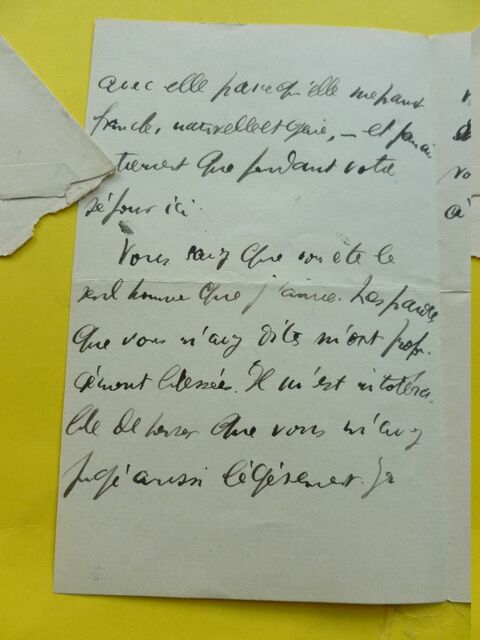 avec elle parce qu'elle me parait
franche, naturelle et gaie, – et
que pendant votre
séjour ici.
Vous savez que vous êtes le
seul homme que j'aime. Les paroles
que vous m'avez dites m'ont profon-
dément blessée. Il m'est intoléra-
ble de penser que vous m'avez
jugé aussi légèrement. Je